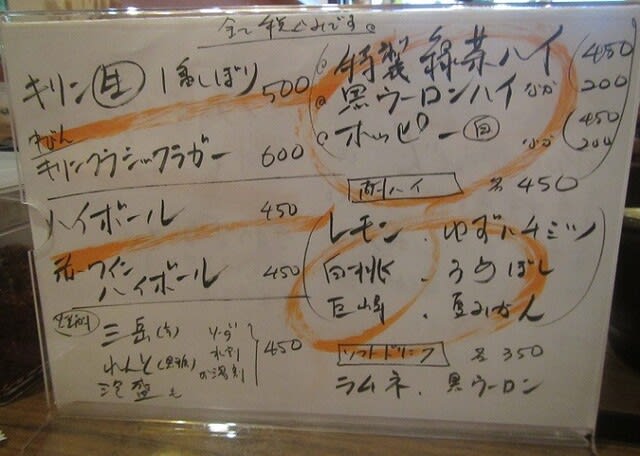 全て税込みです。
キリン 生 1番しぼり 500
中びん
キリンクラシックラガー 600
ハイボール 450
赤ワイン
ハイボール 450
三岳(芋) ソーダ
れんと(黒糖) 水割
泡盛 お湯割
450
特製緑茶ハイ 450
黒ウーロンハイ なか 200
ホッピー 白 450
なか 200
酎ハイ 各450
レモン、ゆずハチミツ
白桃、うめぼし
巨峰、夏みかん
ソフトドリンク 各350
ラムネ、黒ウーロン